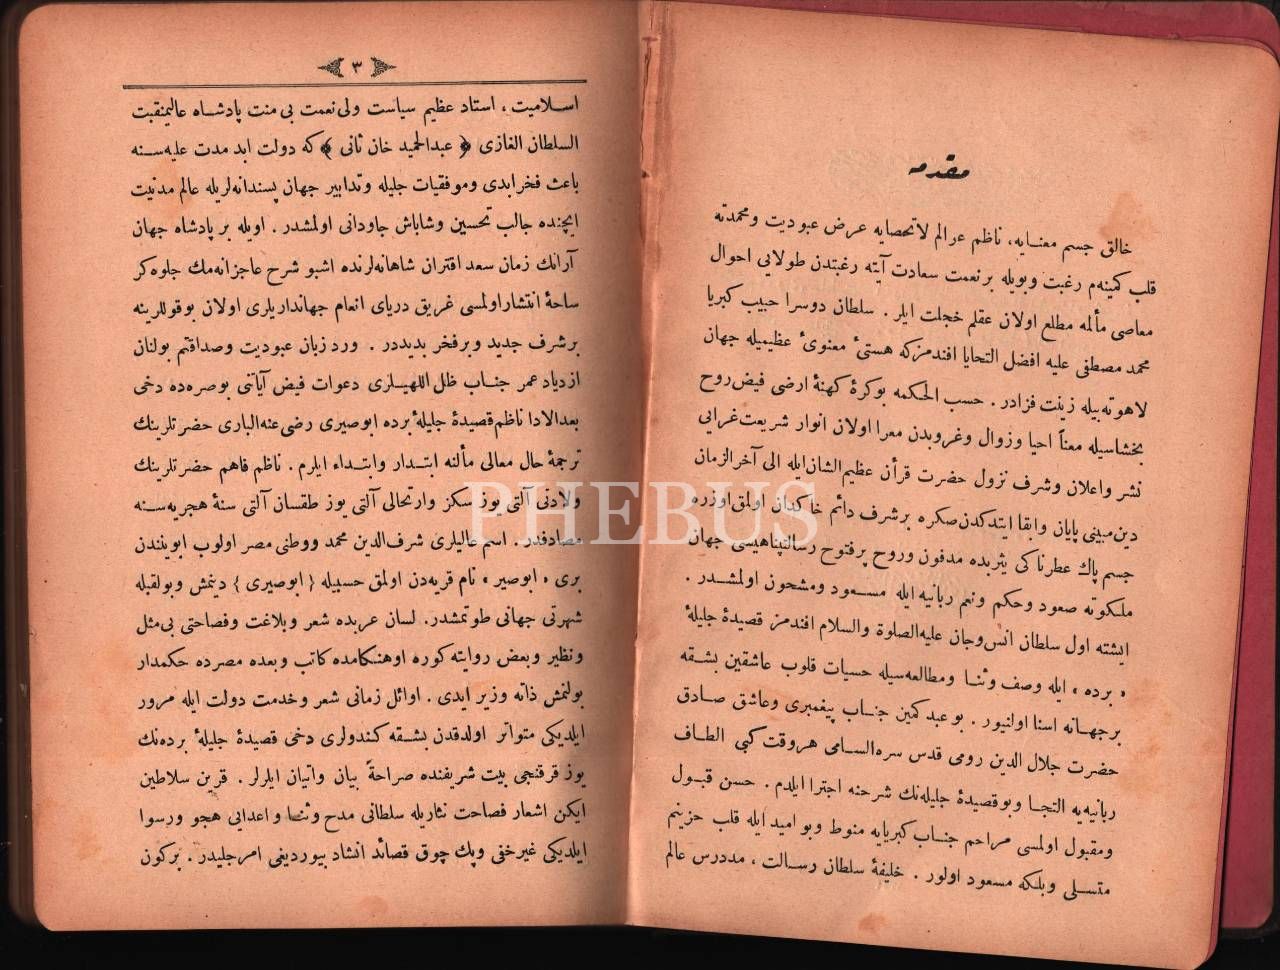 مقدمه
خالق جسم معنایه، ناظم عوالم لاتحصایه عرض عبودیت ومحمدته
قلب کمینه‌م رغبت وبویله بر نعمت سعادت آیته رغبتدن طولایی احوال
معاصی مآلمه مطلع اولان عقلم خجلت ایلر . سلطان دوسرا حبیب کبریا
محمد مصطفی علیه افضل التحایا افندمزکه هستیٔ معنویٔ عظیمیله جهان
لاهوته بیله زینت فزادر . حسب الحکمه بوکرهٔ کهنهٔ ارضی فیض روح
بخشاسیله معناً احیا وزوال وغروبدن معرا اولان انوار شریعت غرایی
نشر واعلان وشرف نزول حضرت قرأن عظیم‌الشان‌ایله الی آخرالزمان
دین مبینی پایان وابقا ایتدکدن صکره بر شرف دائم خاکدان اولمق اوزره
جسم پاك عطرناکی یثربده مدفون وروح پرفتوح رسالتپناهیسی جهان
ملکوته صعود وحکم ونعم ربانیه ایله مسـعود ومشحون اولمشـدر .
ایشته اول سلطان انس‌وجان علیه‌الصلوة والسلام افندمز قصیدهٔ جلیلهٔ
« برده » ایله وصف وثنـا ومطالعه‌سیله حسیات قلوب عاشقین بشقه
بر جهـانه اسنا اولنیور . بو عبد کمین جنـاب پیغمبری وعاشق صـادق
حضرت جلال الدین رومی قدس سره‌السـامی هروقت کبی الطـاف
ربانیه‌یه التجـا وبوقصیدهٔ جلیله‌نك شرحنه اجترا ایلدم . حسن قبـول
ومقبول اولمسی مراحم جنـاب کبریایه منوط وبو امید ایله قلب حزینم
متسـلی وبلکه مسعود اولور . خلیفهٔ سلطان رسـالت ، مددرس عالم
٣
اسـلامیت ، استاد عظیم سیاست ولی نعمت بی منت پادشـاه عالیمنقبت
السلطان الغازی ﴿ عبدالحمید خان ثانی ﴾ که دولت ابد مدت علیه‌سـنه
باعث فخر ابدی وموفقیات جلیله وتدابیر جهان پسندانه‌لریله عالم مدنیت
ایچنده جالب تحسین وشاباش جاودانی اولمشدر . اویله بر پادشاه جهان
آرانك زمان سعد اقتران شاهانه‌لرنده اشبو شرح عاجزانه‌مك جلوه کر
ساحهٔ انتشار اولمسی غریق دریای انعام جهانداریلری اولان بوقوللرینه
بر شرف جدید وبر فخر بدیددر . ورد زبان عبودیت وصداقتم بولنان
ازدیاد عمر جنـاب ظل اللهیـلری دعوات فیض آیاتنی بوصره‌ده دخی
بعدالادا ناظم قصیدهٔ جلیلهٔ برده ابوصیری رضی‌عنه‌الباری حضرتلرینك
ترجمهٔ حال معالی مألنه ابتـدار وابتـداء ایلرم . ناظم فاهم حضرتلرینك
ولادتی آلتی یوز سکز وارتحالی آلتی یوز طقسان آلتی سنهٔ هجریه‌سـنه
مصادفدر . اسم عالیلری شرف‌الدین محمد ووطنی مصر اولوب ابویندن
بری « ابوصیر » نام قریه‌دن اولمق حسبیله { ابوصیری } دینمش وبولقبله
شهرتی جهانی طوتمشدر. لسان عربده شعر وبلاغت وفصاحتی بی‌مثل
ونظیر وبعض روایته کوره اوهنـکامده کاتب وبعده مصرده حکمدار
بولنمش ذاته وزیر ایدی . اوائل زمانی شعر وخدمت دولت ایله مرور
ایلدیکی متواتر اولدقدن بشقه کندولری دخی قصیدهٔ جلیلهٔ برده‌نك
یوز قرقنجی بیت شریفنده صراحةً بیان واتیان ایلرلر . قرین سلاطین
ایکن اشعار فصاحت نثاریله سلطانی مدح وثنـا واعدایی هجو ورسوا
ایلدیکی غیرخفی وپك چوق قصائد انشاد بیوردیغی امر جلیدر . برکون
PHEBUS